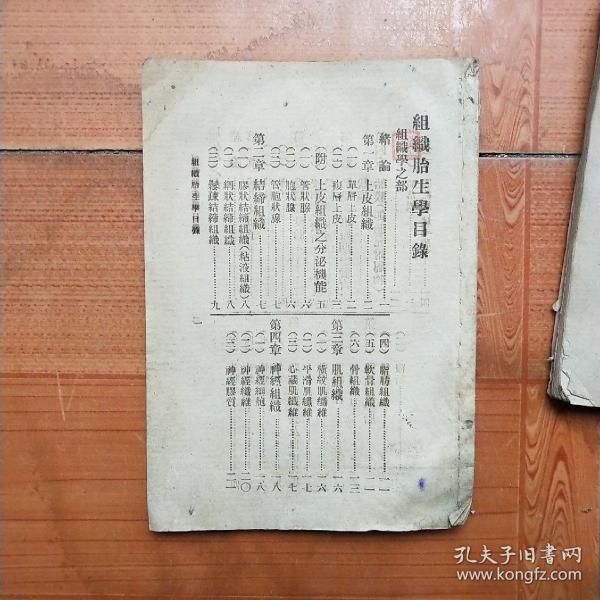 組織胎生學目錄
組織學之部
緒論……一
第一章 上皮組織……二
（一）單層上皮……二
（二）複層上皮……三
（附）上皮組織之分泌機能……五
（一）管狀腺……六
（二）胞狀腺……六
（三）管胞狀腺……七
第二章 結締組織……七
（一）膠狀結締組織（粘液組織）……八
（二）網狀結締組織……八
（三）鬆疎結締組織……九
（四）脂肪組織……一一
（五）軟骨組織……一一
（六）骨組織……一三
第三章 肌組織……一六
（一）橫紋肌纖維……一六
（二）平滑肌纖維……一七
（三）心臟肌纖維……一七
第四章 神經組織……一八
（一）神經細胞……一八
（二）神經纖維……二〇
（三）神經膠質……二二
組織胎生學目錄
一
孔夫子旧书网
www.kongfz.com